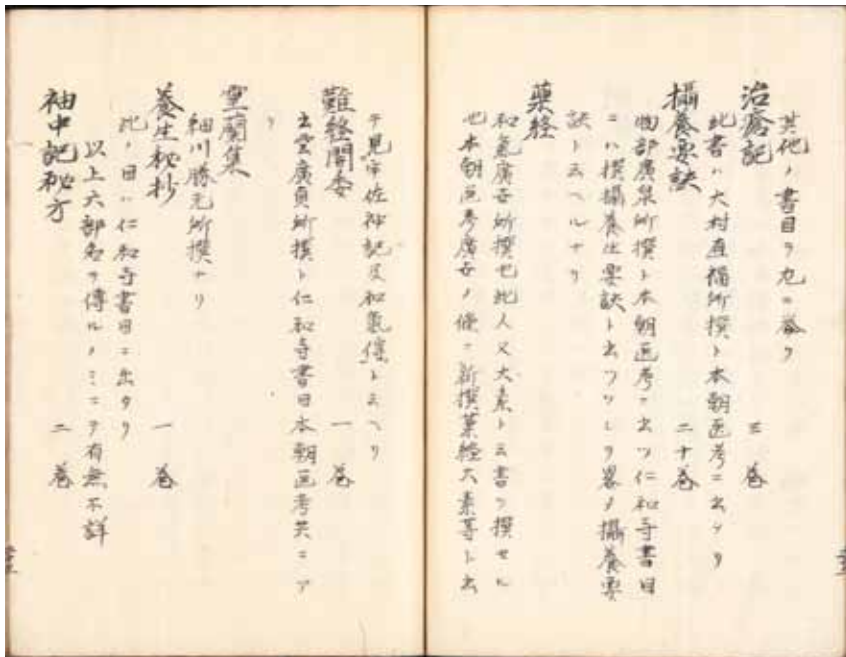 其他ノ書目ヲ左ニ擧ク
治瘡記 三卷
此書ハ大村直福所撰ト本朝医考ニ出タリ
攝養要訣 二十卷
物部廣泉所撰ト本朝医考ニ出ツ仁和寺書目
ニハ撰攝養生要訣ト出ツツレヲ畧メ攝養要
訣ト云ヘルナリ
藥経
和氣廣世所撰也此人又大素ト云書ヲ撰セル
也本朝医考廣世ノ條ニ新撰薬経大素等ト出
ヲ見宇佐神記及和氣傳ト云ヘリ
難経開委 一卷
出雲廣貞所撰ト仁和寺書目本朝医考共ニア
リ
霊蘭集
細川勝元所撰ナリ
養生秘抄 一卷
此ノ目ハ仁和寺書目ニ出タリ
以上六部名ヲ傳ルノミニテ有無不詳
袖中記秘方 二卷